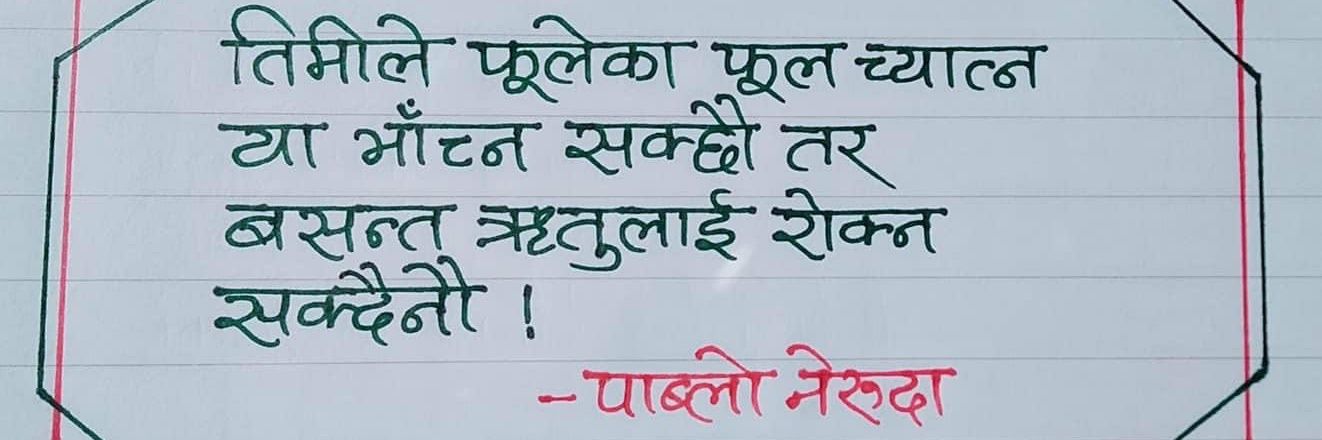 तिमीले फूलेका फूल च्यात्न
या भाँच्न सक्छौ तर
बसन्त ऋतुलाई रोक्न
सक्दैनौ !
-पाब्लो नेरुदा